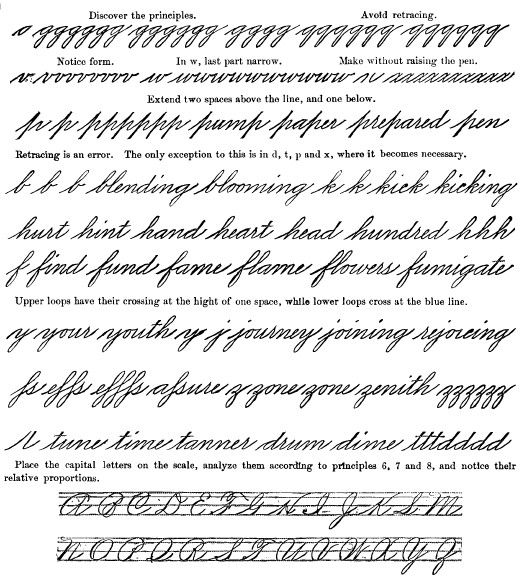 Discover the principles. Avoid retracing.
Notice form. In w, last part narrow. Make without raising the pen.
Extend two spaces above the line, and one below.
p p pppppp pump paper prepared pen
Retracing is an error. The only exception to this is in d, t, p and x, where it becomes necessary.
b b b blending blooming k k kick kicking
hurt hint hand heart head hundred hhh
f find fund fame flame flowers fumigate
Upper loops have their crossing at the hight of one space, while lower loops cross at the blue line.
y your youth y j journey joining rejoicing
assure z zone zone zenith zzzzzz
tune time tanner drum dime tttdddd
Place the capital letters on the scale, analyze them according to principles 6, 7 and 8, and notice their
relative proportions.
A B C D E F G H I J K L M
N O P Q R S T U V W X Y Z